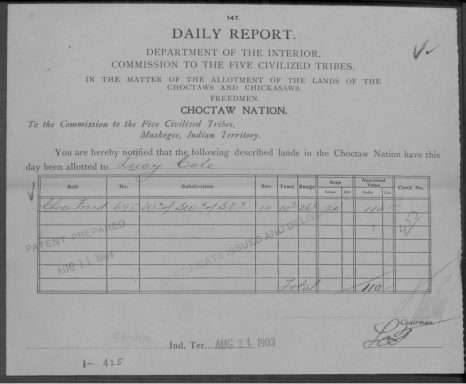 147.
DAILY REPORT.
DEPARTMENT OF THE INTERIOR.
COMMISSION TO THE FIVE CIVILIZED TRIBES.
IN THE MATTER OF THE ALLOTMENT OF THE LANDS OF THE
CHOCTAWS AND CHICKASAWS.
FREEDMEN.
CHOCTAW NATION.
To the Commission to the Five Civilized Tribes,
Muskogee, Indian Territory.
You are hereby notified that the following described lands in the Choctaw Nation have this
day been allotted to Cole
Roll No. Subdivision Sec. Town Range Area Appraised Value Certif. No.
Acres Dolls. Cts.
695 W½ of SW¼ of SE¼ 10 20 110
PATENT PREPARED
AUG 11 1904
CERTIFICATE ISSUED AND
Total 110
Chairman.
Ind. Ter. AUG 24 1903
1- 435